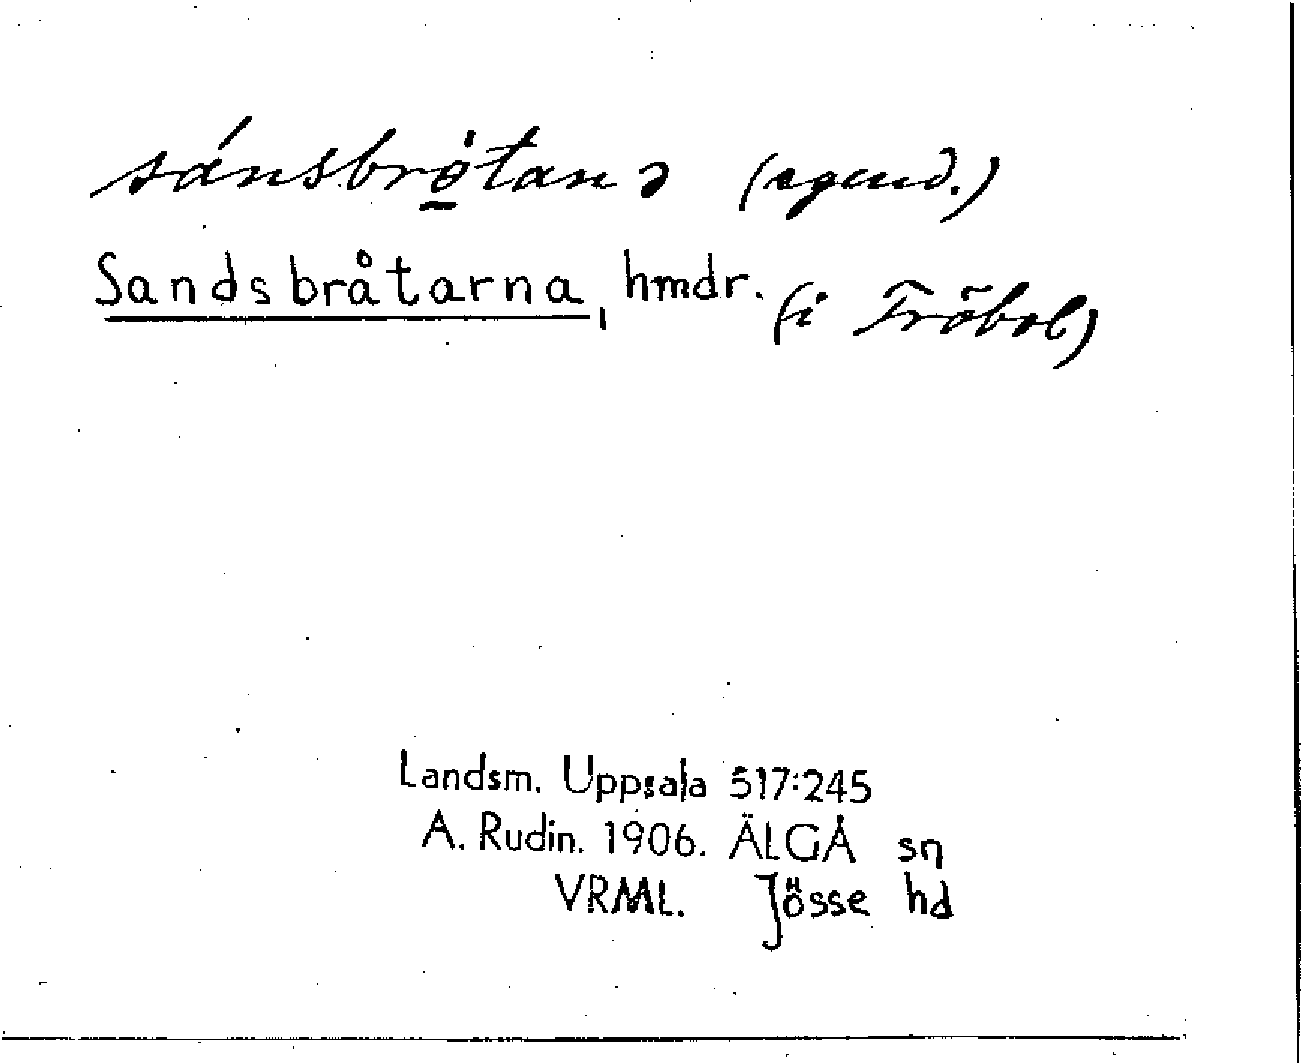 sánsbrötanə (egend.)
Sandsbråtarna, hmdr. (i Fröbol)
Landsm. Uppsala 517:245
A. Rudin. 1906. ÄLGÅ sn
VRML. Jösse hd